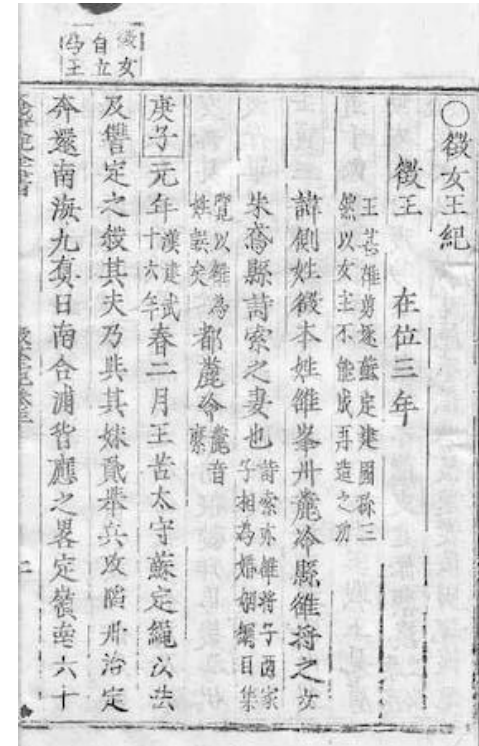 徵女
自立
為王
○徵女王紀
徵王　在位三年
王甚雄勇逐蘇定建國称王
然以女主不能成再造之功
諱側姓徵本姓雒峯州麊泠縣雒將之女
朱鳶縣詩索之妻也詩索亦雒將子両家
子相為婚姻綱目集
覽以雒為
姓誤矣都麊泠麊音
縻
庚子元年漢建武
十六年春二月王苦太守蘇定繩以法
及讐定之殺其夫乃與其妹貳舉兵攻陷州治定
奔還南海九真日南合浦皆應之畧定嶺南六十